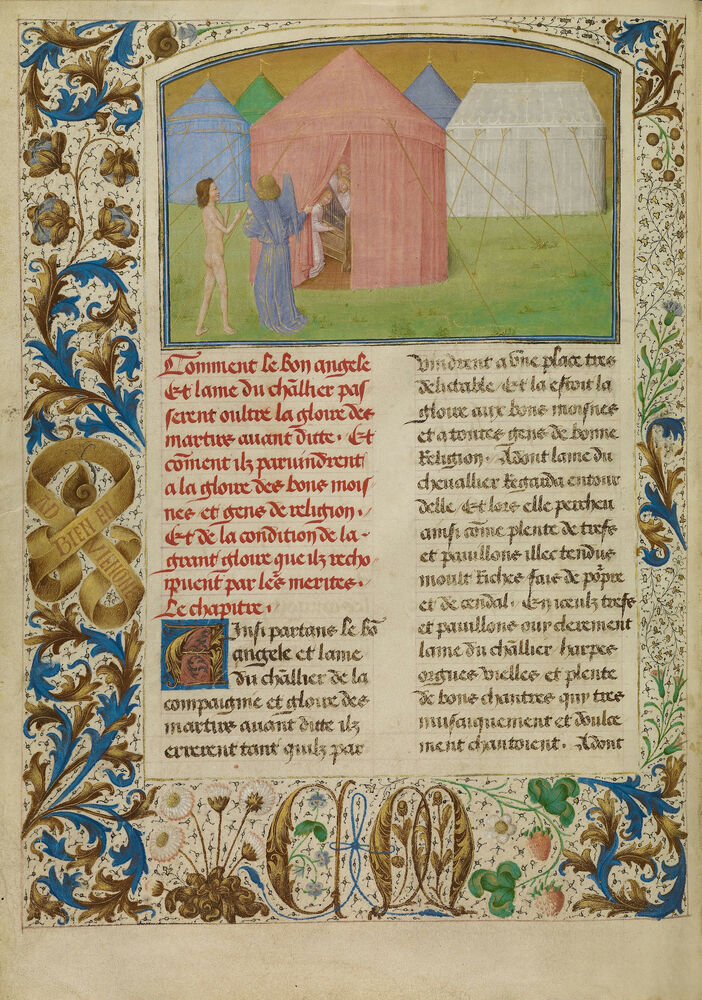 Comment le bon angele
Et lame du challier pas
serent oultre la gloire des
martirs auant ditte. Et
coment ilz paruindrent
a la gloire des bons mois
nes et gens de religion.
Et de la condition de la
grant gloire que ilz recho
ipuent par les merites.
Le chapitre.
Ainsi partans le bo
angele et lame
du challier de la
compaignie et gloire des
martirs auant ditte ilz
errerent tant quilz par
vindrent a vne place tres
delictable. Et la estoit la
gloire aux bons moisnes
et a toutes gens de bonne
Religion. Adont lame du
cheuallier Regarda entour
delle. Et lors elle percheu
ainsi come plente de trefs
et pauillons illec tendus
moult Riches fais de popre
et de cendal. En iceulz trefs
et pauillons ouy clerement
lame du challier harpes
orgues vielles et plente
de bons chantres quy tres
musiquement et doulce
ment chantoient. Adont
BIEN EN
AVIENGNE
CM